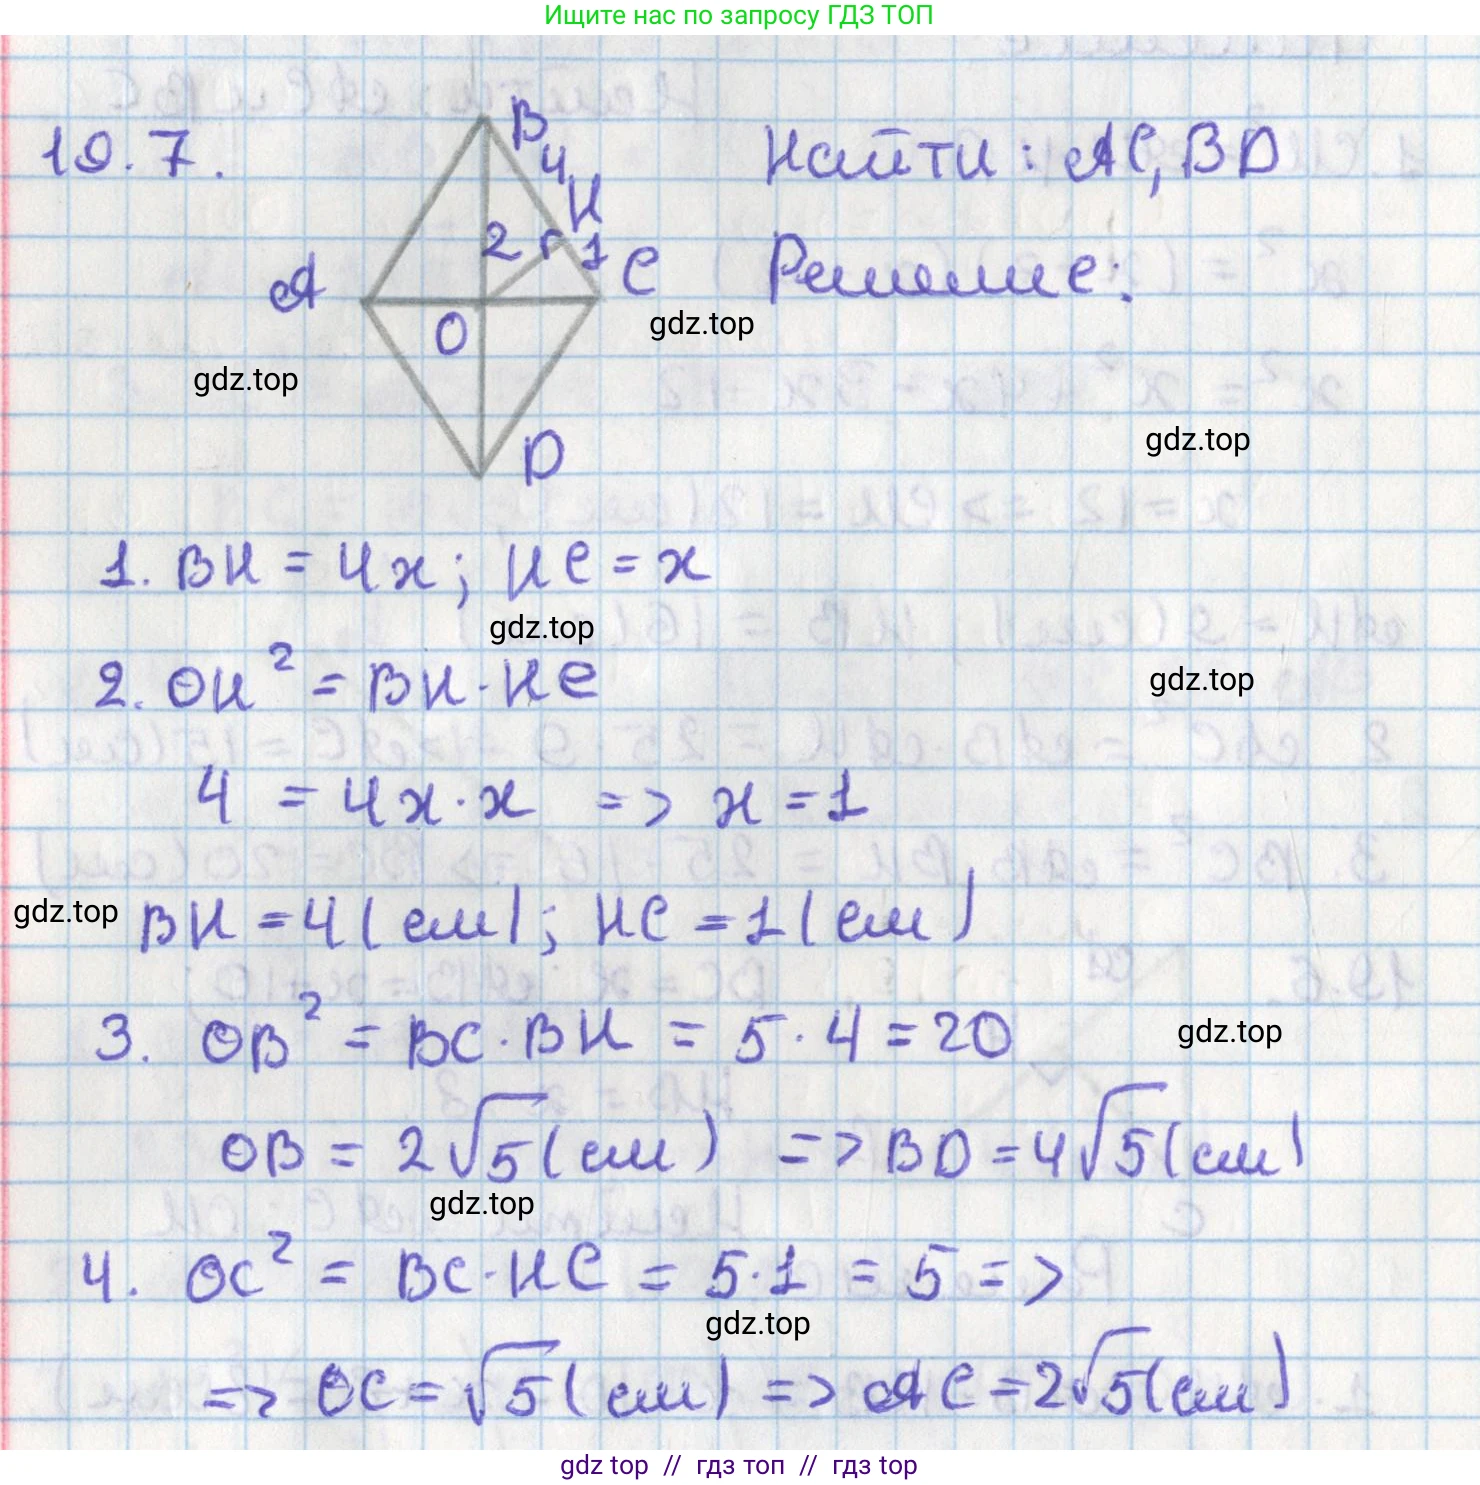 Ищите нас по запросу ГДЗ ТОП
19.7.
B
4
H
2
1
A
C
O
D
Найти: AC, BD
Решение:
gdz.top
gdz.top
gdz.top
1. BH = 4x; HC = x
gdz.top
2. OH² = BH · HC
gdz.top
4 = 4x · x => x = 1
gdz.top
BH = 4 (см); HC = 1 (см)
3. OB² = BC · BH = 5 · 4 = 20
gdz.top
OB = 2√5 (см) => BD = 4√5 (см)
gdz.top
4. OC² = BC · HC = 5 · 1 = 5 =>
gdz.top
=> OC = √5 (см) => AC = 2√5 (см)
gdz top // гдз топ // гдз top